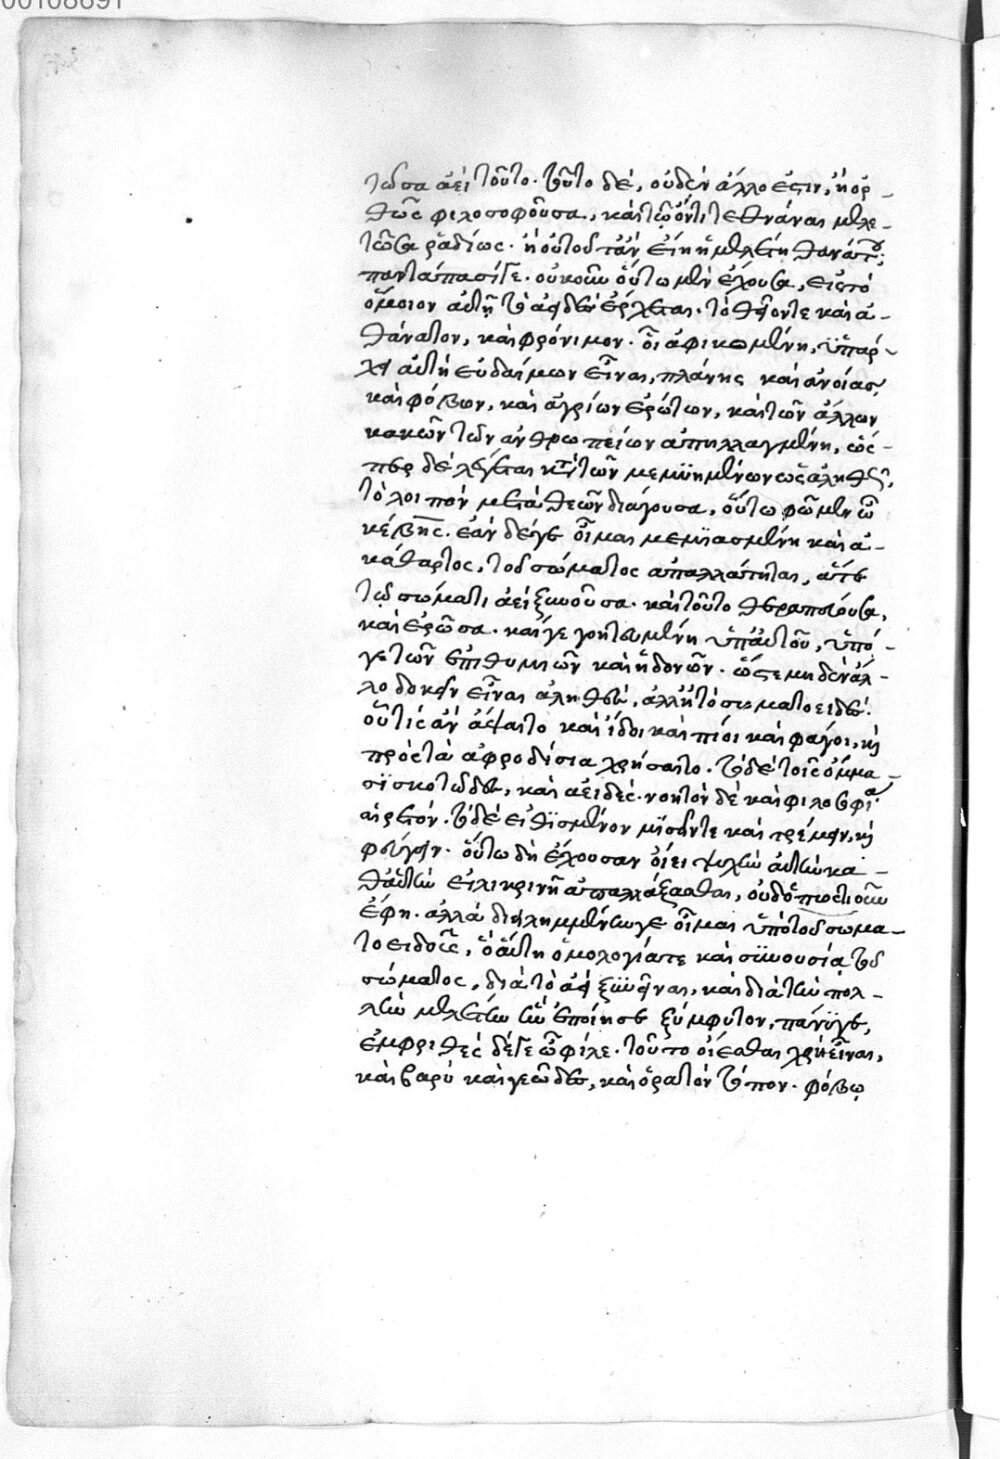 00108691
τῶσα ἀεὶ τοῦτο. τοῦτο δὲ, οὐδὲν ἄλλο ἐστιν, ἢ ὀρ-
θῶς φιλοσοφοῦσα, καὶ τῷ ὄντι τεθνάναι μελε-
τῶσα ῥαδίως. ἢ οὐ τοῦτ' ἂν εἴη ἡ μελέτη θανάτου;
πανταπασί γε. οὐκοῦν οὕτω μὲν ἔχουσα, εἰς τὸ
ὅμοιον αὐτῇ τὸ ἀειδὲς ἔρχεται. τὸ θεῖόν τε καὶ ἀ-
θάνατον, καὶ φρόνιμον. οἷ ἀφικομένη, ὑπάρ-
χει αὐτῇ εὐδαίμων εἶναι, πλάνης καὶ ἀνοίας,
καὶ φόβων, καὶ ἀγρίων ἐρώτων, καὶ τῶν ἄλλων
κακῶν τῶν ἀνθρωπείων ἀπηλλαγμένη, ὥς-
περ δὲ λέγεται κατὰ τῶν μεμϋημένων ὡς ἀληθῶς,
τὸ λοιπὸν μετὰ θεῶν διάγουσα, οὕτω φῶμεν ὦ
κέβης. ἐὰν δέ γε οἶμαι μεμϊασμένη καὶ ἀ-
κάθαρτος, τοῦ σώματος ἀπαλλάττηται, ἅτε
τῷ σώματι ἀεὶ ξυνοῦσα. καὶ τοῦτο θεραπεύουσα,
καὶ ἐρῶσα. καί γε γοητευμένη ὑπ' αὐτοῦ, ὑπό
γε τῶν ἐπιθυμιῶν καὶ ἡδονῶν. ὥστε μηδὲν ἄλ-
λο δοκεῖν εἶναι ἀληθὲς, ἀλλ' ἢ τὸ σωματοειδές.
οὗ τίς ἂν ἅψαιτο καὶ ἴδοι καὶ πίοι καὶ φάγοι, καὶ
πρὸς τὰ ἀφροδίσια χρήσαιτο. τὸ δὲ τοῖς ὄμμα-
σϊ σκοτῶδες, καὶ ἀειδές. νοητὸν δὲ καὶ φιλοσοφίᾳ
αἱρετόν. τὸ δὲ εἰθϊσμένον μϊσεῖν τε καὶ τρέμειν, καὶ
φεύγειν. οὕτω δὴ ἔχουσαν οἴει ψυχὴν αὐτὴν κα-
θ' αὑτὴν εἰλικρινῆ ἀπαλλάξασθαι, οὐδ' ὁπωστιοῦν
ἔφη. ἀλλὰ διειλημμένην γε οἶμαι ὑπὸ τοῦ σωμα-
τοειδοῦς, ὃ αὐτῇ ὁμολογία τε καὶ σϋνουσία τοῦ
σώματος, διὰ τὸ ἀεὶ ξϋνεῖναι, καὶ διὰ τὴν πολ-
λὴν μελέτην ἣν ἐποίησε ξύμφυτον, πάνϋ γε,
ἐμβριθὲς δέ γε ὦ φίλε. τοῦτο οἴεσθαι χρὴ εἶναι,
καὶ βαρὺ καὶ γεῶδες, καὶ ὁρατὸν τόπον. φόβῳ